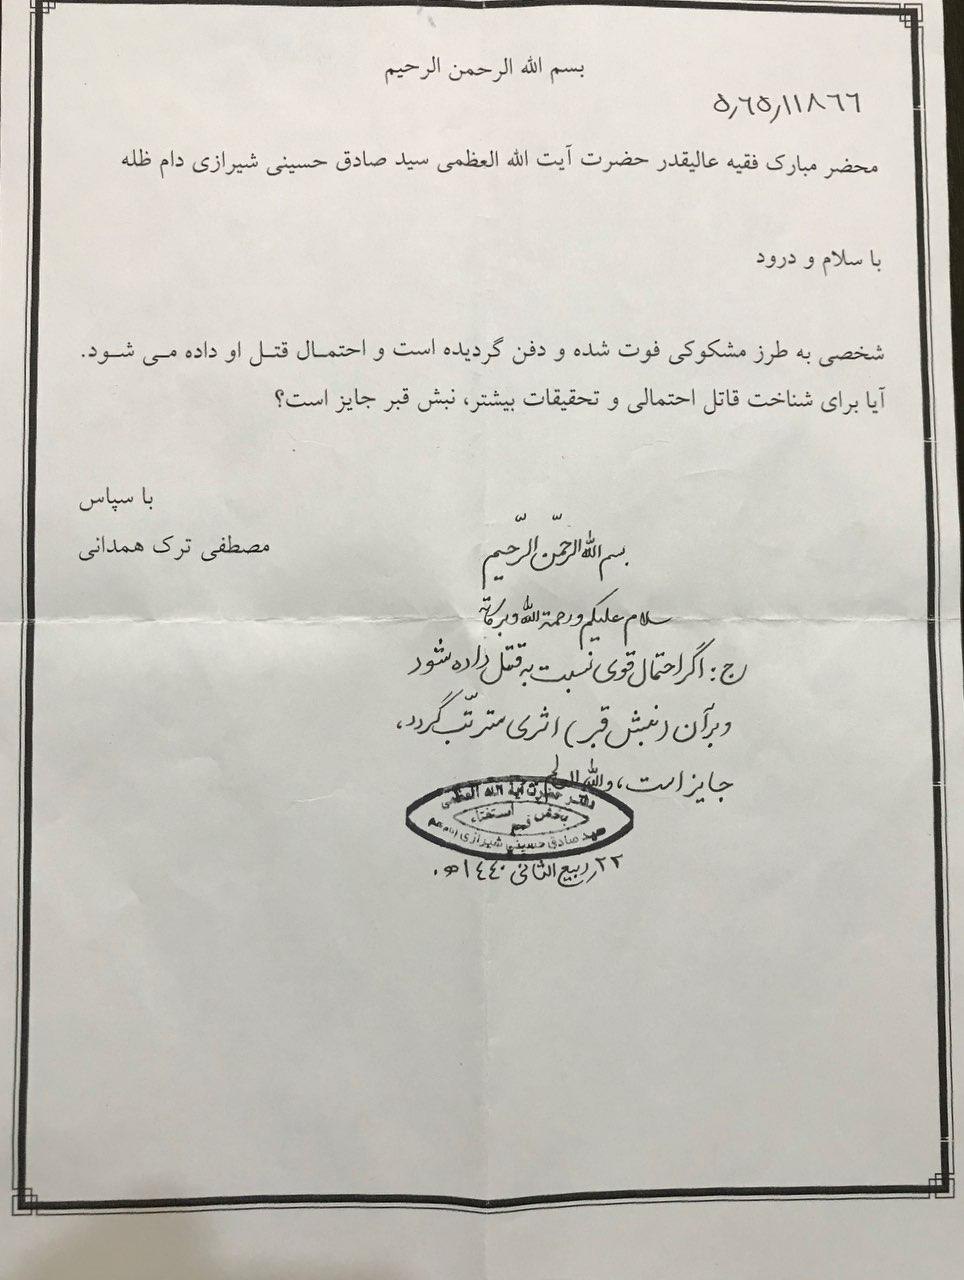 بسم الله الرحمن الرحیم
۵٫٦۵٫۱۱۸٦٦
محضر مبارک فقیه عالیقدر حضرت آیت الله العظمی سید صادق حسینی شیرازی دام ظله
با سلام و درود
شخصی به طرز مشکوکی فوت شده و دفن گردیده است و احتمال قتل او داده می شود.
آیا برای شناخت قاتل احتمالی و تحقیقات بیشتر، نبش قبر جایز است؟
با سپاس
مصطفی ترک همدانی
بسم الله الرحمّن الرّحیم
سلام علیکم ورحمة الله وبرکاته
ج: اگر احتمال قوی نسبت به قتل داده شود
وبرآن (نبش قبر) اثری مترتّب گردد،
جایز است، والله العالم
دفتر حضرت آیة الله العظمی
بخش استفتاء
قم
سید صادق حسینی شیرازی
۲۲ ربیع الثانی ۱٤٤۰ هـ.